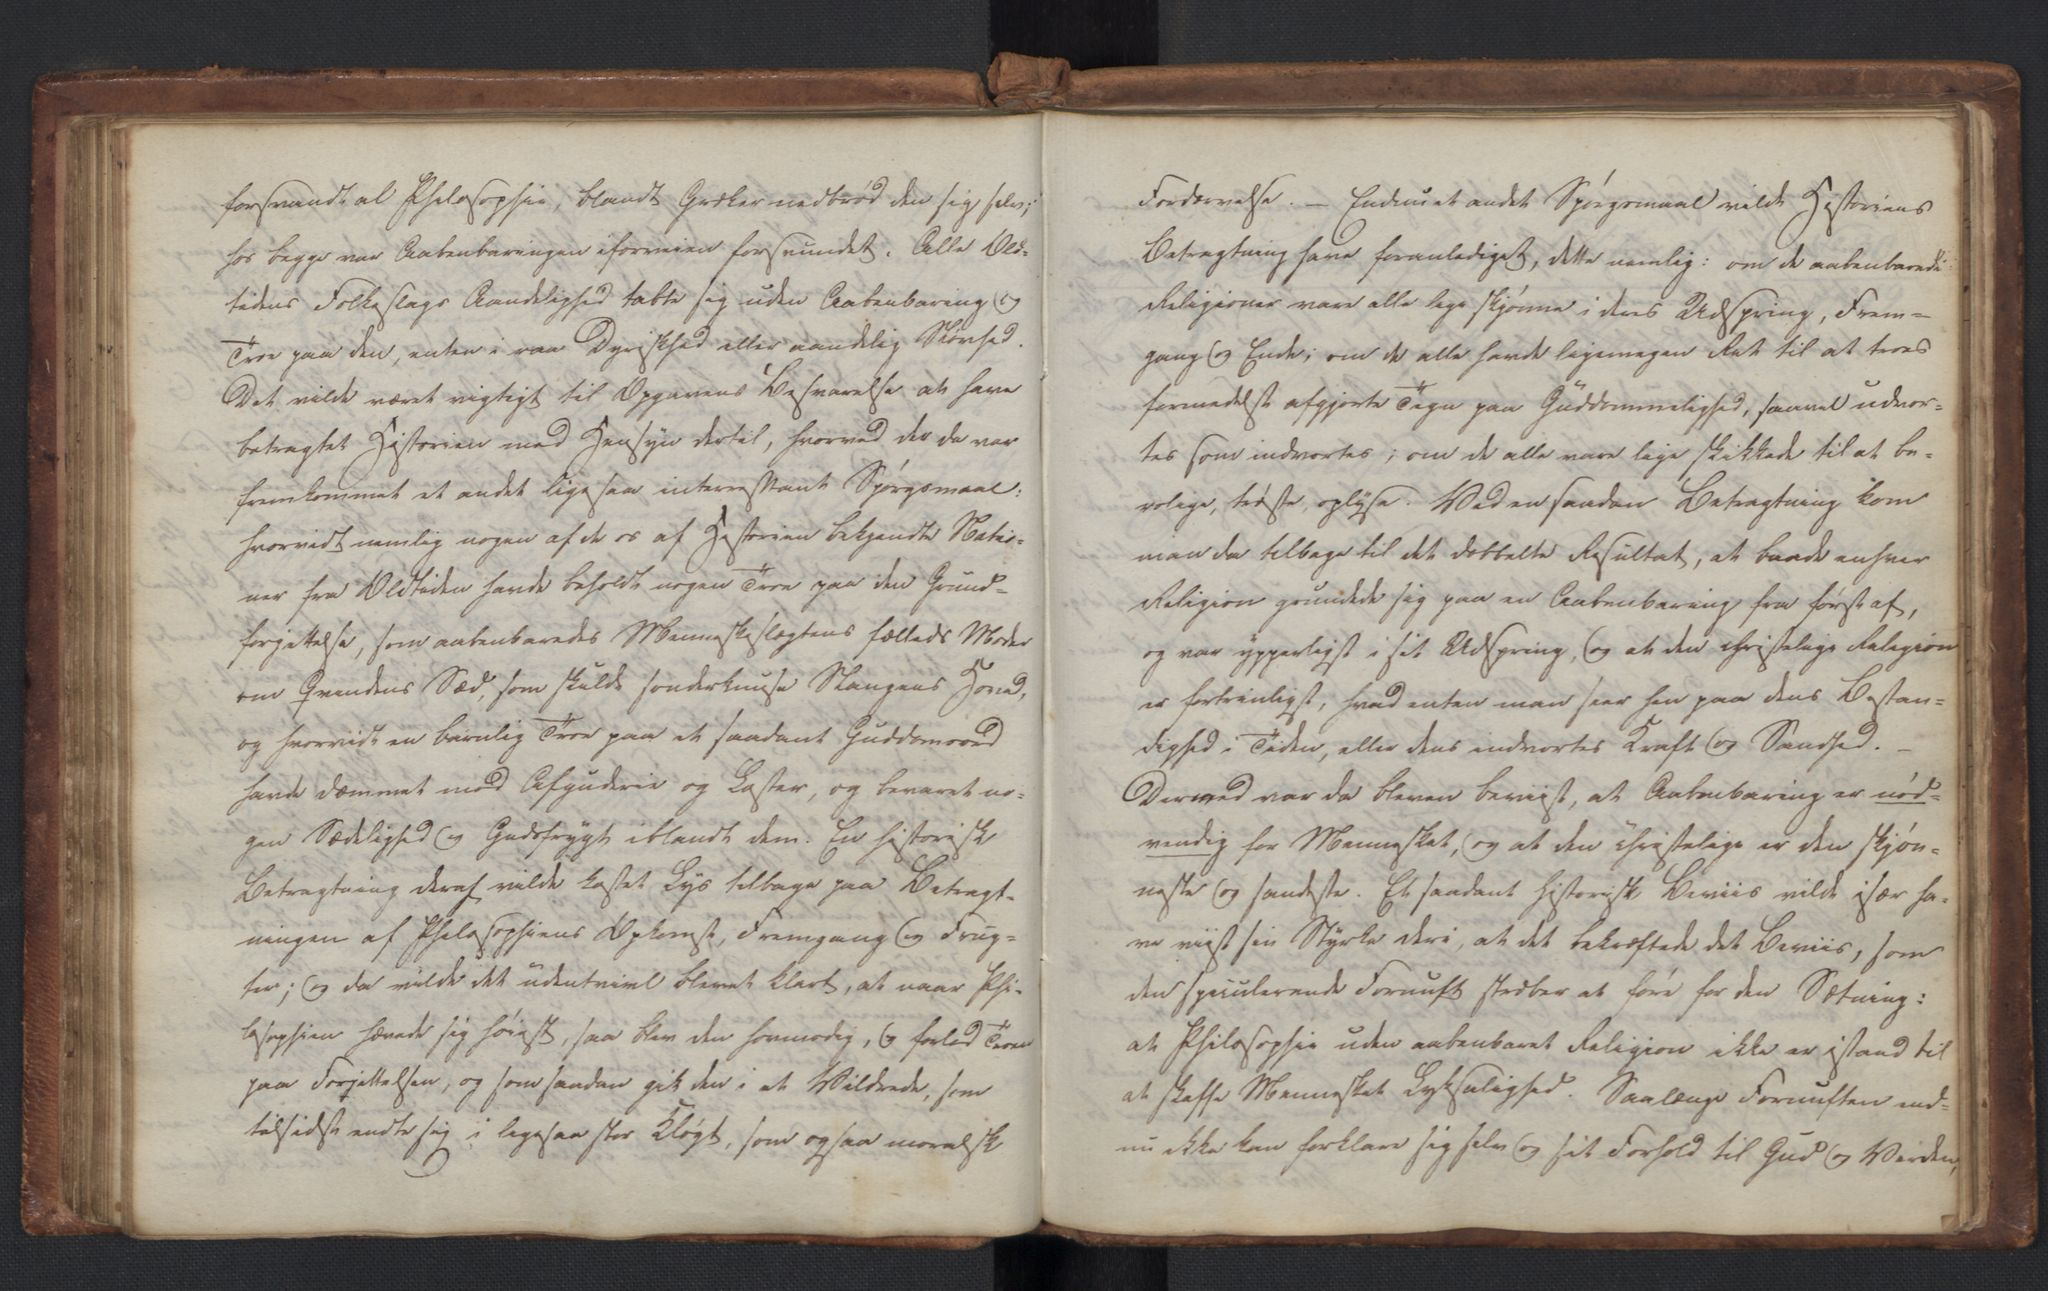 forsvandt al Philosophie, blandt Græker nedbrød den sig selv;
hos begge var Aabenbaringen iforveien forsvundet. Alle Old-
tidens Folkeslags Aandelighed tabte sig uden Aabenbaring og
Troe paa den, enten i raa Dyriskhed eller aandelig Sløvhed.
Det vilde været vigtigt til Opgavens Besvarelse at have
betragtet Historien med Hensyn dertil, hvorved der da var
fremkommet et andet ligesaa interessant Spørgsmaal:
hvorvidt nemlig nogen af de os af Historien bekjendte Natio-
ner fra Oldtiden havde beholdt nogen Troe paa den Grund-
forjettelse, som aabenbaredes Menneskeslægtens fælleds Moder
om Qvindens Sæd, som skulde sønderknuse Slangens Hoved,
og hvorvidt en barnlig Troe paa et saadant Guddomsord
havde dæmmet mod Afguderie og Laster, og bevaret no-
gen Sædelighed og Gudsfrygt iblandt dem. En historisk
Betragtning deraf vilde kastet Lys tilbage paa Betragt-
ningen af Philosophiens Opkomst, Fremgang og Frug-
ter; og da vilde det udentvivl blevet klart, at naar Phi-
losophien hævede sig høiest, saa blev den hovmodig, og forlod Troen
paa Forjettelsen, og som saadan gik den i et Vildrede, som
tilsidst endte sig i ligesaa stor Kløgt, som ogsaa moralsk
Fordærvelse. — Endnu et andet Spørgsmaal vilde Historiens
Betragtning have foranlediget, dette nemlig: om de aabenbarede
Religioner vare alle lige skjønne i deres Udspring, Frem-
gang og Ende; om de alle havde ligemegen Ret til at troes
formedelst afgjorte Tegn paa Guddommelighed, saavel udvor-
tes som indvortes; om de alle vare lige skikkede til at be-
rolige, trøste, oplyse. Ved en saadan Betragtning kom
man da tilbage til det dobbelte Resultat, at baade enhver
Religion grundede sig paa en Aabenbaring fra først af,
og var ypperligst i sit Udspring, og at den christelige Religion
er fortrinligst, hvad enten man seer hen paa dens Bestan-
dighed i Tiden, eller dens indvortes Kraft og Sandhed. —
Dermed var da bleven beviist, at Aabenbaring er nød-
vendig for Mennesket, og at den christelige er den skjøn-
neste og sandeste. Et saadant historisk Beviis vilde især ha-
ve viist sin Styrke deri, at det bekræftede det Beviis, som
den speculerende Fornuft stræber at føre for den Sætning:
at Philosophie uden aabenbaret Religion ikke er istand til
at skaffe Mennesket Lyksalighed. Saalænge Fornuften end-
nu ikke kan forklare sig selv og sit Forhold til Gud og Verden,